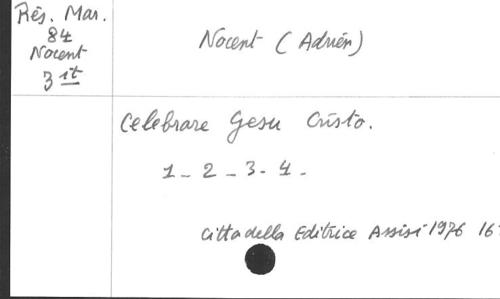 Rés. Mar.
84
Nocent
3 it
Nocent (Adrien)
Celebrare Gesu Cristo.
1 - 2 - 3 - 4 -
Cittadella Editrice Assisi 1976